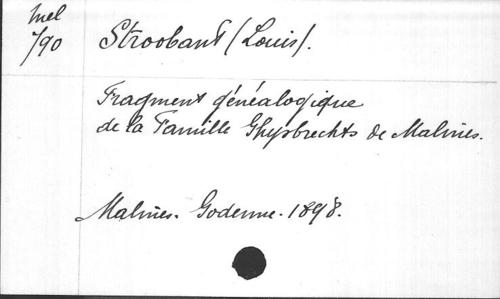 Mel
/90
Stroobant (Louis).
Fragment généalogique
de la Famille Ghysbrechts de Malines.
Malines. Godenne. 1898.